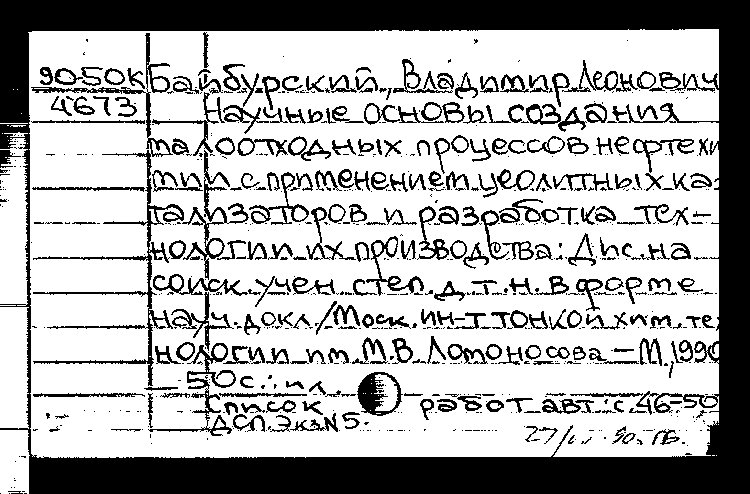 90-50К Байбурский, Владимир Леонович
4673 Научные основы создания
малоотходных процессов нефтехи
мии с применением цеолитных ка-
тализаторов и разработка тех-
нологии их производства: Дис. на
соиск. учен степ. д. т. н. в форме
науч. докл. / Моск. ин-т тонкой хим. те
нологии им. М.В Ломоносова - М., 1990
- 50 с.: ил.
Список работ авт.: с. 46-50
ДСП. Экз N5.